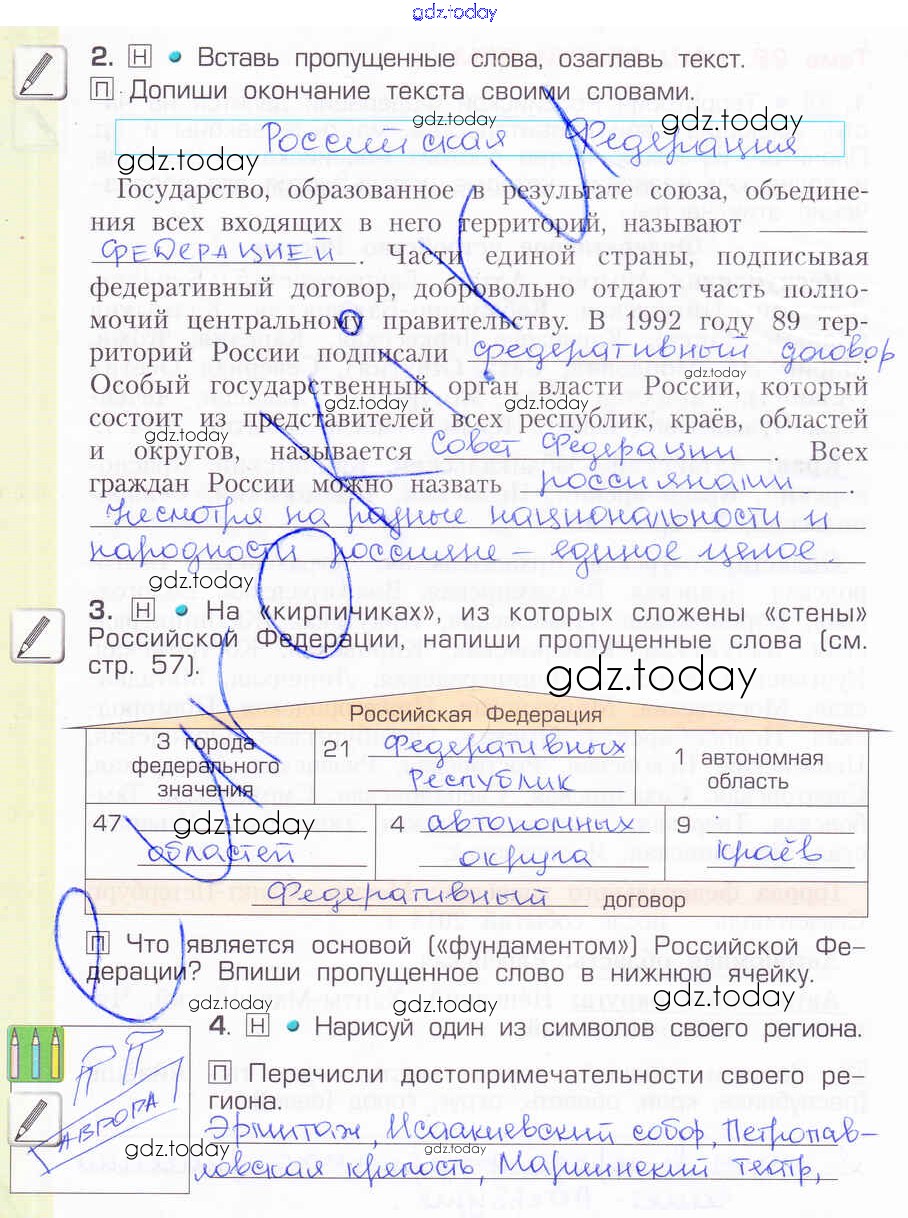 gdz.today
2. Н • Вставь пропущенные слова, озаглавь текст.
П Допиши окончание текста своими словами.
gdz.today
Российская Федерация
gdz.today
Государство, образованное в результате союза, объедине-
ния всех входящих в него территорий, называют
федерацией. Части единой страны, подписывая
федеративный договор, добровольно отдают часть полно-
мочий центральному правительству. В 1992 году 89 тер-
риторий России подписали федеративный договор
gdz.today
Особый государственный орган власти России, который
gdz.today gdz.today
состоит из представителей всех республик, краёв, областей
gdz.today
и округов, называется Совет Федерации. Всех
граждан России можно назвать россиянами.
Несмотря на разные национальности и
народности россияне – единое целое
gdz.today
3. Н • На «кирпичиках», из которых сложены «стены»
Российской Федерации, напиши пропущенные слова (см.
стр. 57).
gdz.today
Российская Федерация
3 города федерального значения
21 Федеративных Республик
1 автономная область
47 областей
gdz.today
4 автономных округа
9 краёв
Федеративный договор
П Что является основой («фундаментом») Российской Фе-
дерации? Впиши пропущенное слово в нижнюю ячейку.
gdz.today gdz.today gdz.today
4. Н • Нарисуй один из символов своего региона.
П Перечисли достопримечательности своего ре-
гиона.
АВРОРА
gdz.today
Эрмитаж, Исаакиевский собор, Петропав-
ловская крепость, Мариинский театр,
gdz.today gdz.today